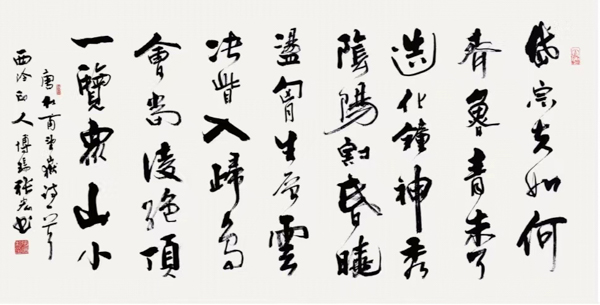 岱宗夫如何
齊魯青未了
造化鐘神秀
陰陽割昏曉
盪胷生层雲
决眥入歸鳥
會當凌絕頂
一覽衆山小
唐杜甫望嶽詩一首
西泠印人